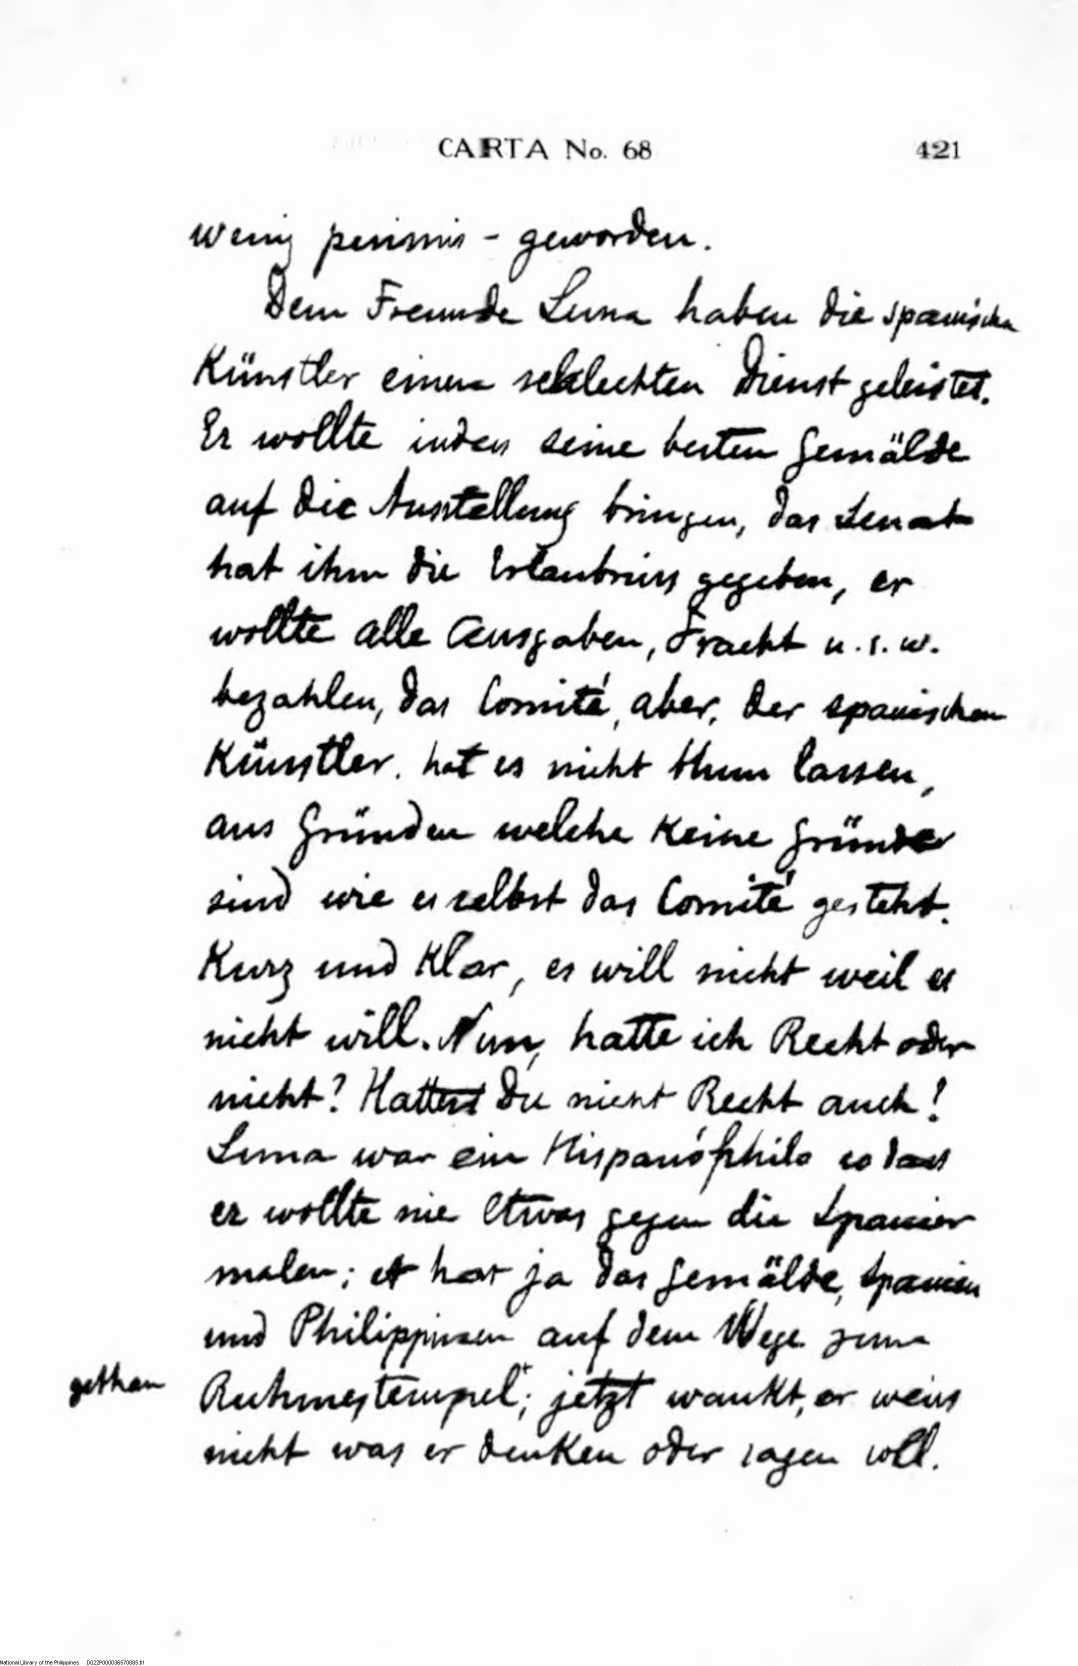 CARTA No. 68 421
wenig pessimis - geworden.
Dem Freunde Luna haben die spanischen
Künstler einen schlechten Dienst geleistet.
Er wollte indess seine besten Gemälde
auf die Ausstellung bringen, das Senat
hat ihm die Erlaubniss gegeben, er
wollte alle Ausgaben, Fracht u.s.w.
bezahlen, das Comité, aber, der spanischen
Künstler. hat es nicht thun lassen,
aus Gründen welche keine Gründe
sind wie es selbst das Comité gesteht.
Kurz und klar, es will nicht weil es
nicht will. Nun, hatte ich Recht oder
nicht? Hattest Du nicht Recht auch!
Luna war ein Hispanóphilo so dass
er wollte nie Etwas gegen die Spanier
malen; er hat ja das Gemälde, Spanien
und Philippinen auf dem Wege zum
gethan Ruhmestempel"; jetzt wankt, er weiss
nicht was er denken oder sagen soll.
National Library of the Philippines